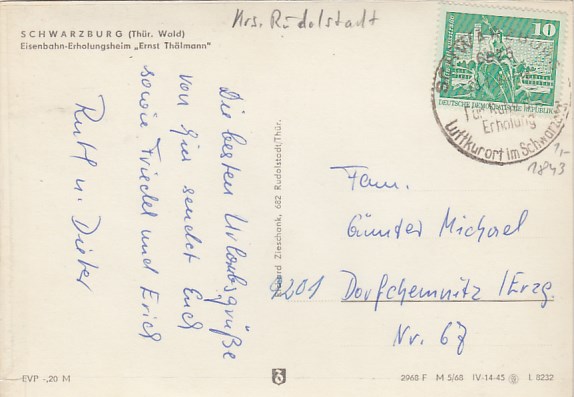 Krs. Rudolstadt
SCHWARZBURG (Thür. Wald)
Eisenbahn-Erholungsheim „Ernst Thälmann"
Die besten Urlaubsgrüße
von hier sendet Euch
sowie Friedel und Erich
Ruth u. Dieter
Zieschank, 682 Rudolstadt/Thür.
10
DEUTSCHE DEMOKRATISCHE REPUBLIK
SCHWARZBURG
Erholung
Luftkurort im Schwarzatal
1,-
1843
Fam.
Günter Michael
9201 Dorfchemnitz /Erzg.
Nr. 67
EVP -,20 M
2968 F M 5/68 IV-14-45 L 8232